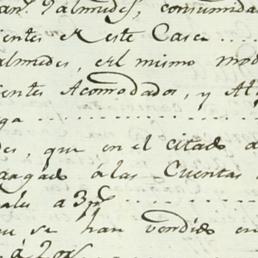 an.º Palmedes, consumida
ientes él este Casa
almedes, el mismo mod
ient Acomodados, y Al
ga
es, que en el citado a
argado á las Cuentas
ale a 3 p.
ue se han vendido en
á 20 r.